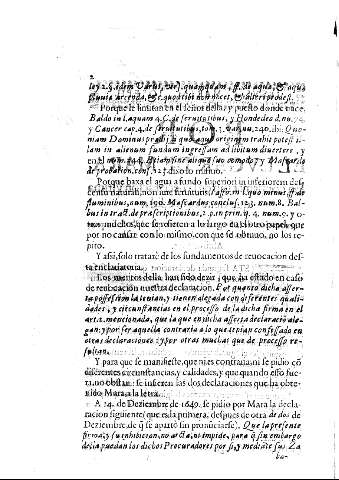 2
ley 2. §. idem Varus, vers. quamquam, ff. de aqua, & aqua
pluuia arcenda, & quod tibi non nocet, & alteri prodest.
Porque le limitan en el señor della, y puesto donde nace.
Baldo in l. aquam 4. C. de seruitutibus, y Hondedeo
y Cancer cap. 4. de seruitutibus, tom. 3. num. 240. ibi: Quo-
niam Dominus prædij à quo aqua oritur
illam in alienum fundum ingressam ad libitum diuertere, y
en el num. 244. Etiam sine aliquo suo commodo, y Mascardo
de probation. conf. 325. dixo lo mismo.
Porque baxa el agua à fundo superiori in inferiorem
fluminibus, num. 190. Mascardus conclus. 123. num. 8. Bal-
bus in tract. de præscriptionibus, 2. part. prin. q. 4. num. 9. y o-
tros muchos que se refieren a lo largo en otro papel, que
por no cansar con lo mismo con que se obtuuo, no los re-
pito.
Y assi, solo tratarè de los fundamentos de reuocacion des-
ta enclauatura.
Los meritos della han sido dezir, que ha estado en caso
de reuocacion nuestra declaracion. Por quanto dicha asser-
ta possession la tenian, y tienen alegada con diferentes quali-
dades, y circunstancias en el processo de la dicha firma en el
art. 2. mencionada, que la que en dicha asserta declaracio ale-
gan: y por ser aquella contraria a lo que tenian confessado en
otras declaraciones: y por otras muchas que de processo re-
sultan.
Y para que se manifieste, que ni es contraria, ni se pidio cõ
diferentes circunstancias, y calidades, y que quando esso fue-
ra, no obstan: se insieren las dos declaraciones que ha obte-
nido Mara, a la letra.
A 24. de Deziembre de 1649. se pidio por Mara la decla-
racion siguiente (que es la primera, despues de otra de dos de
Deziembre de q̃ se apartò sin pronũciarse). Que la presente
firma, y su inhibicion, no aya, ni impide, para q̃ sin embargo
della puedan los dichos Procuradores por si, y mediante sus Za
ba-